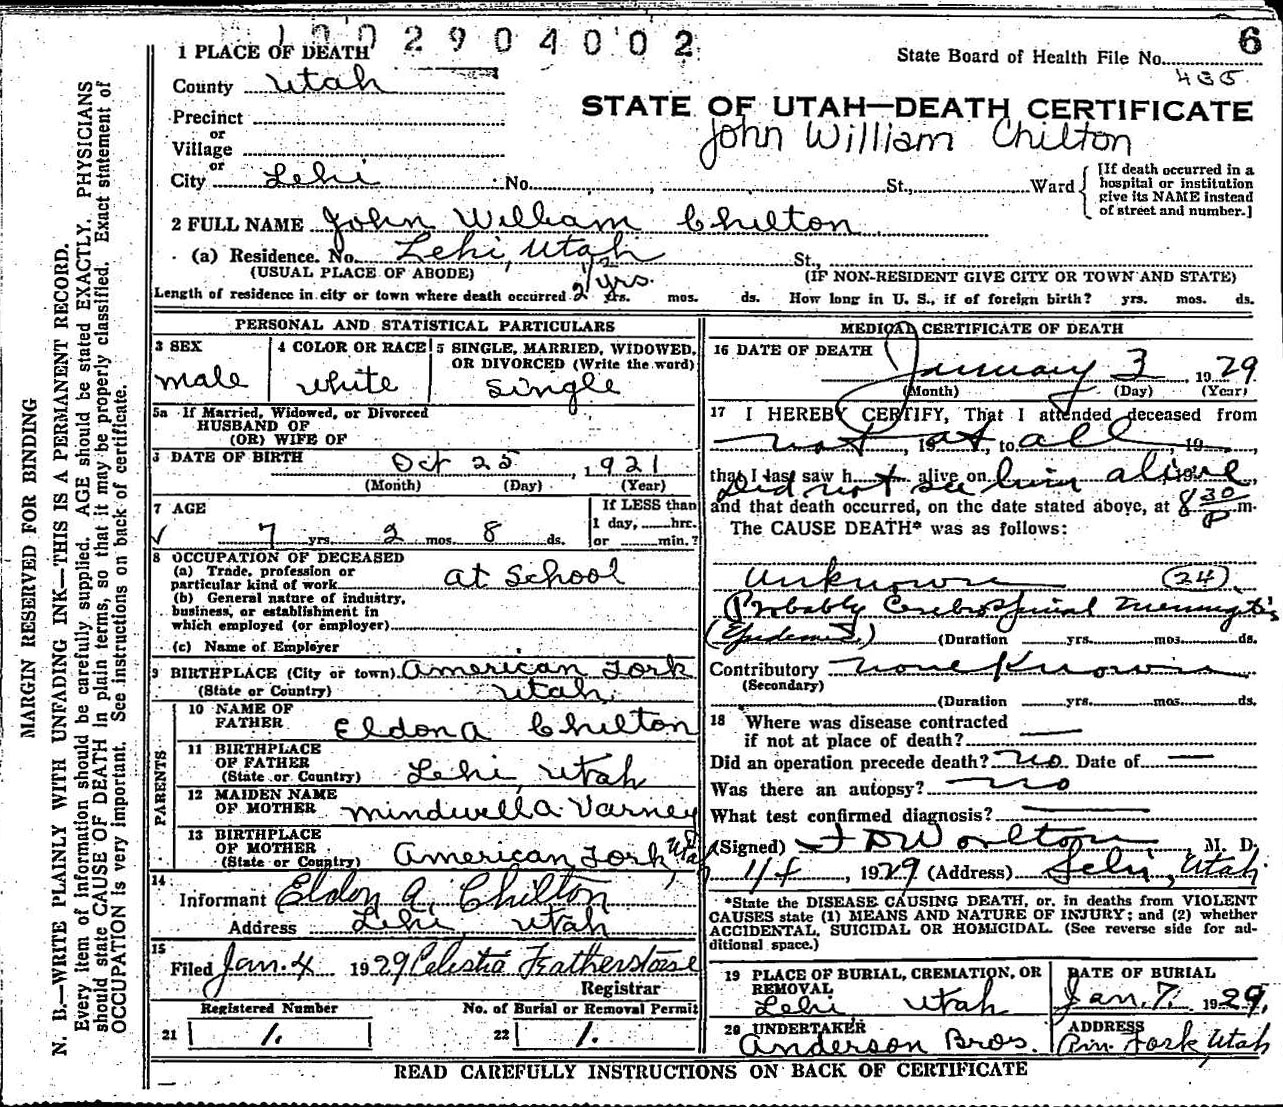 1 PLACE OF DEATH 1002904002 6
State Board of Health File No. 435
County Utah
STATE OF UTAH—DEATH CERTIFICATE
Precinct
John William Chilton
or
Village
or
City Lehi No. St., Ward [If death occurred in a hospital or institution give its NAME instead of street and number.]
2 FULL NAME John William Chilton
(a) Residence. No. Lehi, Utah St.,
(USUAL PLACE OF ABODE) (IF NON-RESIDENT GIVE CITY OR TOWN AND STATE)
Length of residence in city or town where death occurred 2 yrs. yrs. mos. ds. How long in U. S., if of foreign birth? yrs. mos. ds.
PERSONAL AND STATISTICAL PARTICULARS
3 SEX 4 COLOR OR RACE 5 SINGLE, MARRIED, WIDOWED, OR DIVORCED (Write the word)
male white single
5a If Married, Widowed, or Divorced
HUSBAND OF
(OR) WIFE OF
DATE OF BIRTH Oct 25, 1921
(Month) (Day) (Year)
7 AGE If LESS than
1 day, hrc.
7 yrs. 2 mos. 8 ds. or min.?
8 OCCUPATION OF DECEASED
(a) Trade, profession or
particular kind of work at School
(b) General nature of industry,
business, or establishment in
which employed (or employer)
(c) Name of Employer
9 BIRTHPLACE (City or town) American Fork
(State or Country) Utah
PARENTS
10 NAME OF
FATHER Eldon A Chilton
11 BIRTHPLACE
OF FATHER
(State or Country) Lehi, Utah
12 MAIDEN NAME
OF MOTHER Mindwella Varney
13 BIRTHPLACE
OF MOTHER
(State or Country) American Fork, Utah
14
Informant Eldon A. Chilton
Address Lehi, Utah
15
Filed Jan. 4 1929 Celestia Featherstone
Registrar
Registered Number No. of Burial or Removal Permit
21 1. 22 1.
MEDICAL CERTIFICATE OF DEATH
16 DATE OF DEATH
January 3 1929
(Month) (Day) (Year)
17 I HEREBY CERTIFY, That I attended deceased from
not, 19 at, to all, 19
that I last saw h alive on
Did not see him alive
and that death occurred, on the date stated above, at 8 30 P m.
The CAUSE DEATH* was as follows:
Unknown (24)
Probably Cerebrospinal Meningitis
(Epidemic) (Duration yrs. mos. ds.
Contributory none Known
(Secondary)
(Duration yrs. mos. ds.
18 Where was disease contracted
if not at place of death?
Did an operation precede death? no. Date of
Was there an autopsy? no
What test confirmed diagnosis?
(Signed) F D Worlton M. D.
1/4, 1929 (Address) Lehi, Utah
*State the DISEASE CAUSING DEATH, or, in deaths from VIOLENT
CAUSES state (1) MEANS AND NATURE OF INJURY; and (2) whether
ACCIDENTAL, SUICIDAL OR HOMICIDAL. (See reverse side for ad-
ditional space.)
19 PLACE OF BURIAL, CREMATION, OR
REMOVAL
Lehi Utah
DATE OF BURIAL
Jan. 7. 1929.
20 UNDERTAKER
Anderson Bros.
ADDRESS
Am. Fork, Utah
READ CAREFULLY INSTRUCTIONS ON BACK OF CERTIFICATE
MARGIN RESERVED FOR BINDING
N. B.—WRITE PLAINLY WITH UNFADING INK—THIS IS A PERMANENT RECORD.
Every item of information should be carefully supplied. AGE should be stated EXACTLY. PHYSICIANS
should state CAUSE OF DEATH in plain terms, so that it may be properly classified. Exact statement of
OCCUPATION is very important. See instructions on back of certificate.